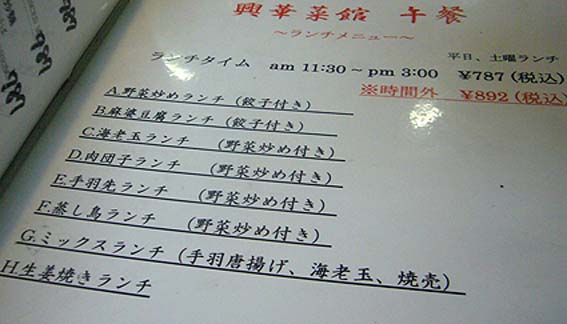 興華菜館 午餐
～ランチメニュー～
平日、土曜ランチ
ランチタイム am 11:30 ～ pm 3:00 ¥787 (税込)
※時間外 ¥892 (税込)
A.野菜炒めランチ (餃子付き)
B.麻婆豆腐ランチ (餃子付き)
C.海老玉ランチ (野菜炒め付き)
D.肉団子ランチ (野菜炒め付き)
E.手羽先ランチ (野菜炒め付き)
F.蒸し鳥ランチ (野菜炒め付き)
G.ミックスランチ (手羽唐揚げ、海老玉、焼売)
H.生姜焼きランチ